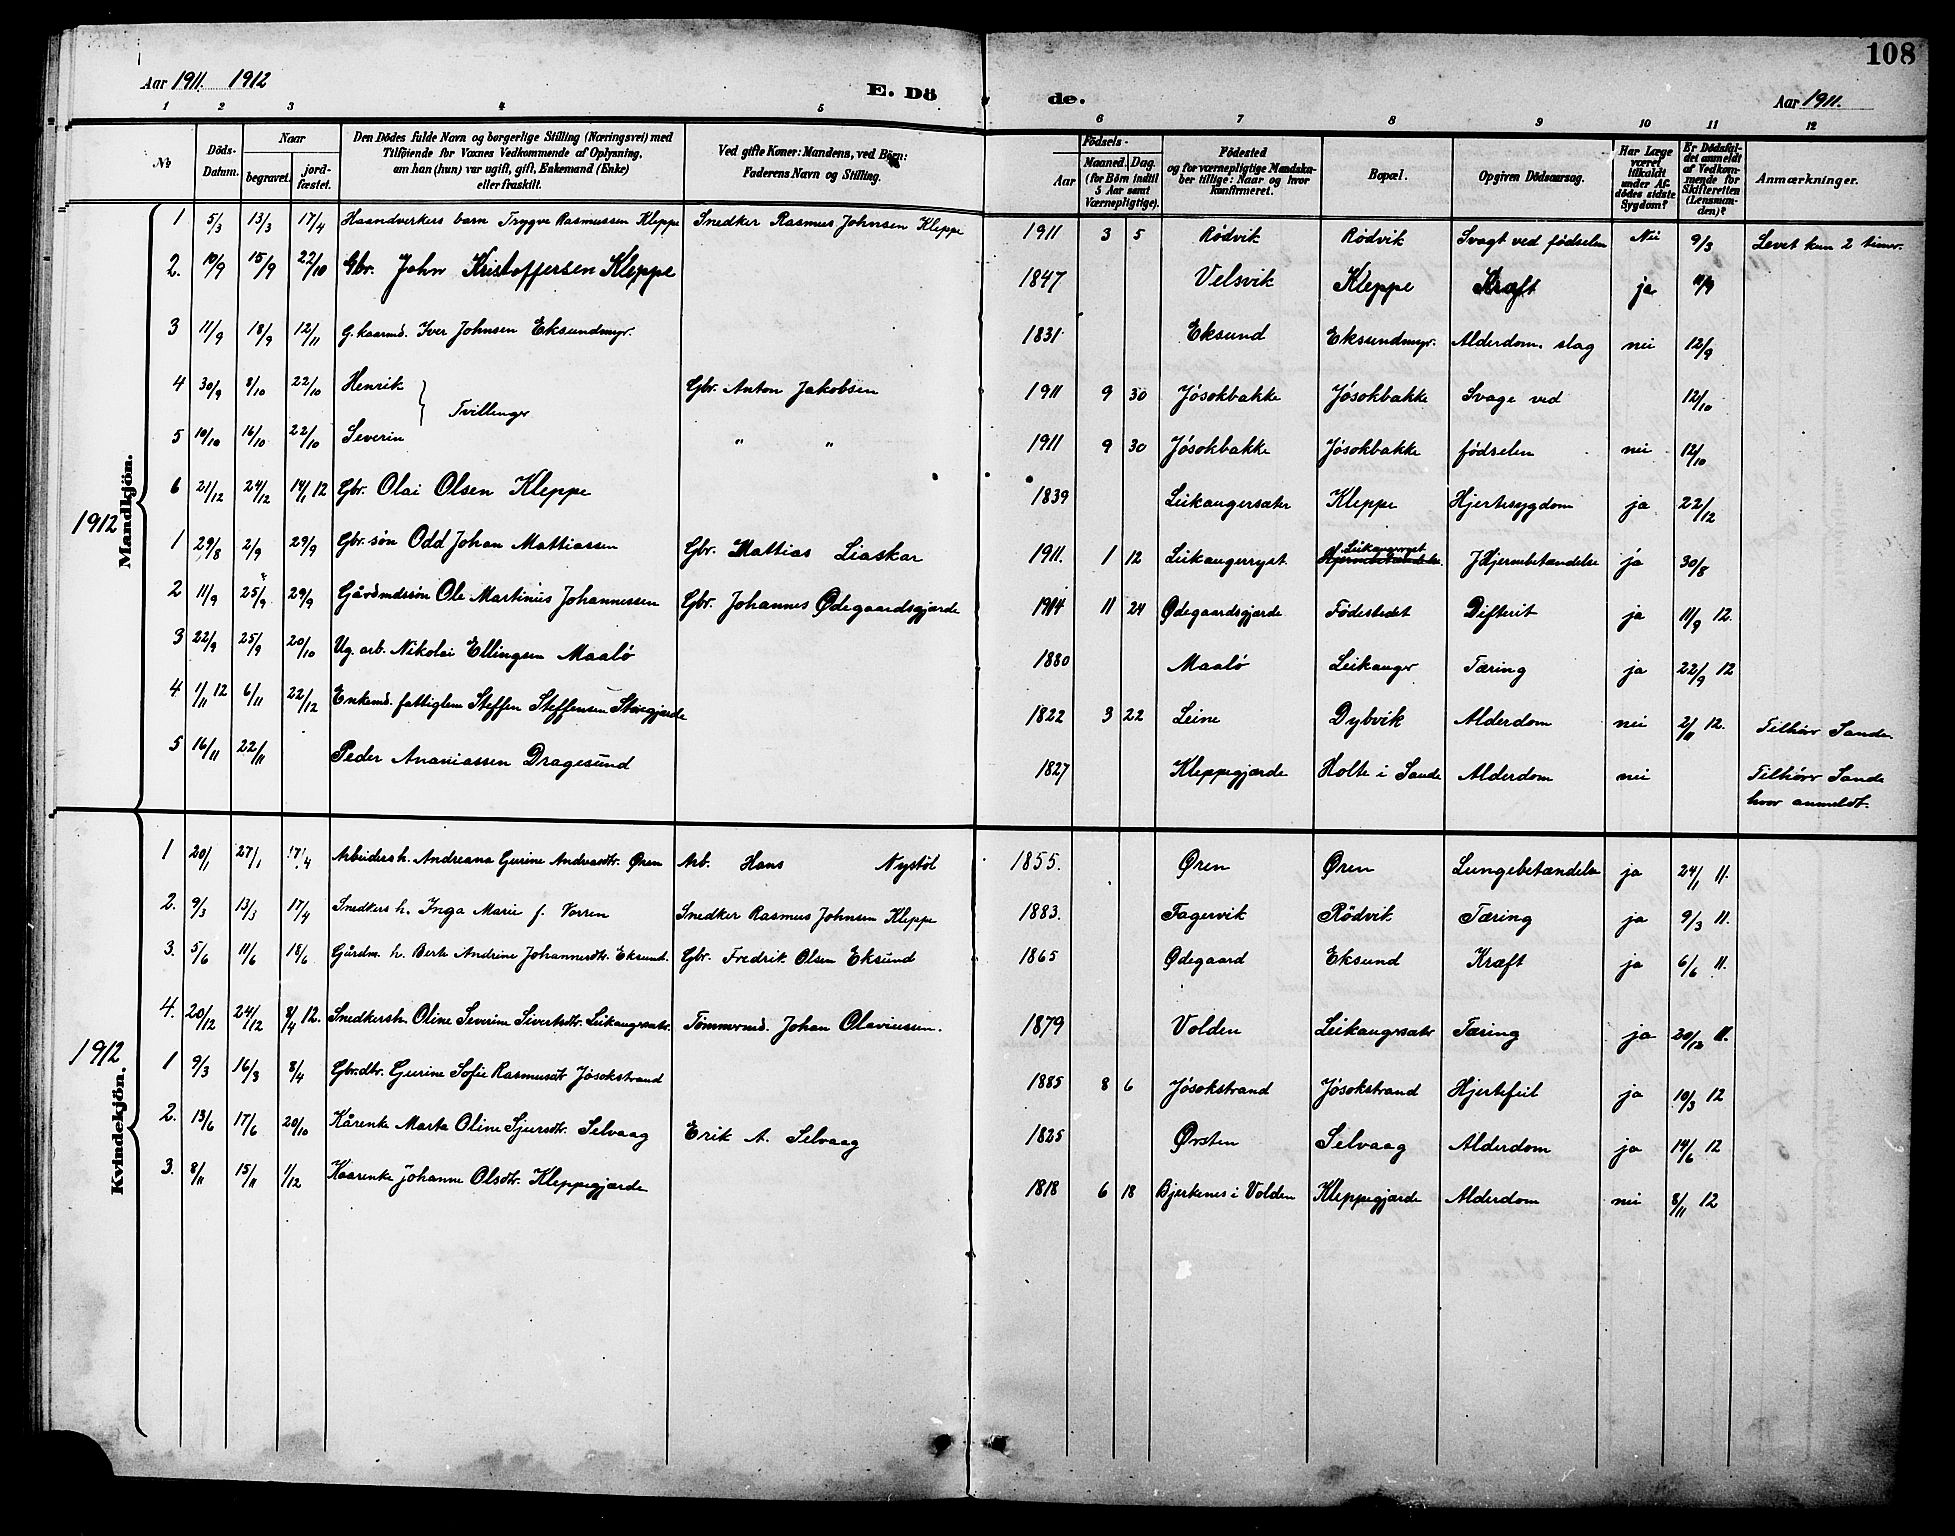 108
Aar 1911. 1912
E. Dö
de.
Aar 1911.
1 2 3 4 5 6 7 8 9 10 11 12
No
Döds-Datum.
Naar
begravet.
jord-fæstet.
Den Dödes fulde Navn og borgerlige Stilling (Næringsvei) med
Tilföiende for Voxnes Vedkommende af Oplysning,
om han (hun) var ugift, gift, Enkemand (Enke)
eller fraskilt.
Ved gifte Koner: Mandens, ved Börn:
Faderens Navn og Stilling.
Födsels-
Aar
Maaned. Dag.
(for Börn indtil
5 Aar samt
Værnepligtige).
Födested
og for værnepligtige Mandska-
ber tillige: Naar og hvor
konfirmeret.
Bopæl.
Opgiven Dödsaarsag.
Har Læge
været
tilkaldt
under Af-
dödes sidste
Sygdom?
Er Dödsfal-
det anmeldt
af Vedkom-
mende for
Skifteretten
(Lensman-
den)?
Anmærkninger.
Mandkjön.
1 5/3 13/3 17/4 Haandverkers barn Trygve Rasmussen Kleppe Snedker Rasmus Johnsen Kleppe 1911 3 5 Rødvik Rødvik Svagt ved fødselen Nei 9/3 Levet kun 2 timer.
2. 10/9 15/9 22/10 Gbr. John Kristoffersen Kleppe 1847 Velsvik Kleppe Kræft ja 11/9
3 11/9 18/9 12/11 G. kaarmd. Iver Johnsen Eksundmyr. 1831 Eksund Eksundmyr. Alderdom. slag nei 12/9
4 30/9 8/10 22/10 Henrik } Tvillinger Gbr. Anton Jakobsen 1911 9 30 Jósokbakke Jósokbakke Svage ved 12/10
5 10/10 16/10 22/10 Severin " " 1911 9 30 Jósokbakke Jósokbakke fødselen nei 12/10
6 21/12 24/12 14/1 12 Gbr. Olai Olsen Kleppe 1839 Leikangersæter Kleppe Hjertesygdom ja 22/12
1912
1 29/8 2/9 29/9 Gbr. søn Odd Johan Mattiassen Gbr. Mattias Liaskar 1911. 1 12 Leikangerryst Leikangerryst Hjernebetændelse ja 30/8
2 11/9 25/9 29/9 Gårdmdssøn Ole Martinus Johannessen Gbr. Johannes Ødegaardsgjærde 1914 11 24 Ødegaardsgjærde Fødestedet Difterit ja 11/9 12.
3 22/9 25/9 20/10 Ug. arb. Nikolai Ellingsen Maalø 1880 Maalø Leikanger Tæring ja 22/9 12
4 1/11 12 6/11 22/12 Enkemd. fattiglem Steffen Steffensen 1822 3 22 Leine Dybvik Alderdom nei 2/11 12. Tilhører Sande
5 16/11 22/11 Peder Ananiassen Dragesund 1827 Kleppegjærde Holte i Sande Alderdom nei Tilhører Sande
hvor anmeldt.
Kvindekjön.
1 20/1 27/1 17/4 Arbeidersh. Andreana Gurine Andreasdtr. Øren Arb. Hans Nystøl 1855. Øren Øren Lungebetændelse ja 24/1 11.
2. 9/3 13/3 17/4 Snedkers h. Inga Marie f. Vorren Snedker Rasmus Johnsen Kleppe 1883. Fagervik Rødvik Tæring ja 9/3 11.
3. 5/6 11/6 18/6 Gårdm. h. Berte Andrine Johannesdtr. Eksund. Gbr. Fredrik Olsen Eksund 1865 Ødegaard Eksund Kræft ja 6/6 11.
4. 20/12 24/12 8/4 12. Snedkersh. Oline Severine Sivertsdtr. Leikangersæter. Tømmermd. Johan Olaviussen. 1879 Volden Leikangersæter Tæring ja 20/12 11.
1912
1 9/3 16/3 8/4 Gbr.dtr. Gurine Sofie Rasmusdtr Jósokstrand 1885 8 6 Jósokstrand Jósokstrand Hjertefeil ja 10/3 12
2. 13/6 17/6 20/10 Kårenke Marta Oline Sjursdtr. Selvaag Erik A. Selvaag 1825 Ørsten Selvaag Alderdom ja 14/6 12
3. 8/11 15/11 1/12 Kaarenke Johanne Olsdtr. Kleppegjærde 1818 6 18 Bjerkenes i Volden Kleppegjærde Alderdom nei 8/11 12